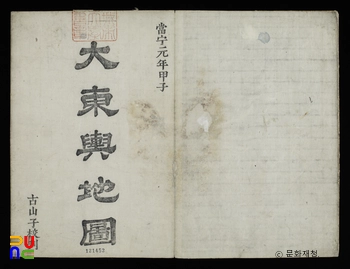 當宁元年甲子
大東輿地圖
古山子校刊
121423
© 문화재청